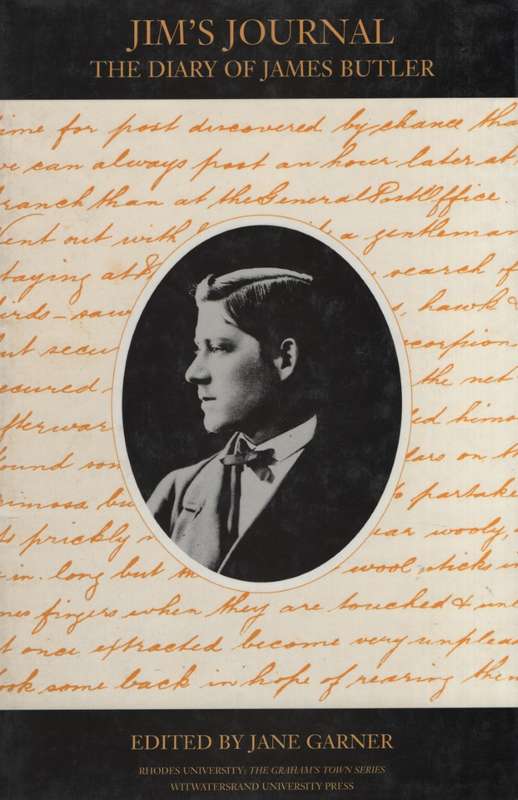 JIM'S JOURNAL
THE DIARY OF JAMES BUTLER
ime for post discovered by chance tha
we can always post an hour later at
ranch than at the General Post Office.
Went out with a gentleman
taying at search of
irds - saw hawk &
ut secu scorpion
ecured the net
fterwar himse
ound som on th
imosa bu partake
ts prickly ear wooly,
in. long but th wool sticks in
nes fingers when they are touched & unl
t once extracted become very unpleas
ook some back in hope of rearing them
EDITED BY JANE GARNER
RHODES UNIVERSITY: THE GRAHAM'S TOWN SERIES
WITWATERSRAND UNIVERSITY PRESS